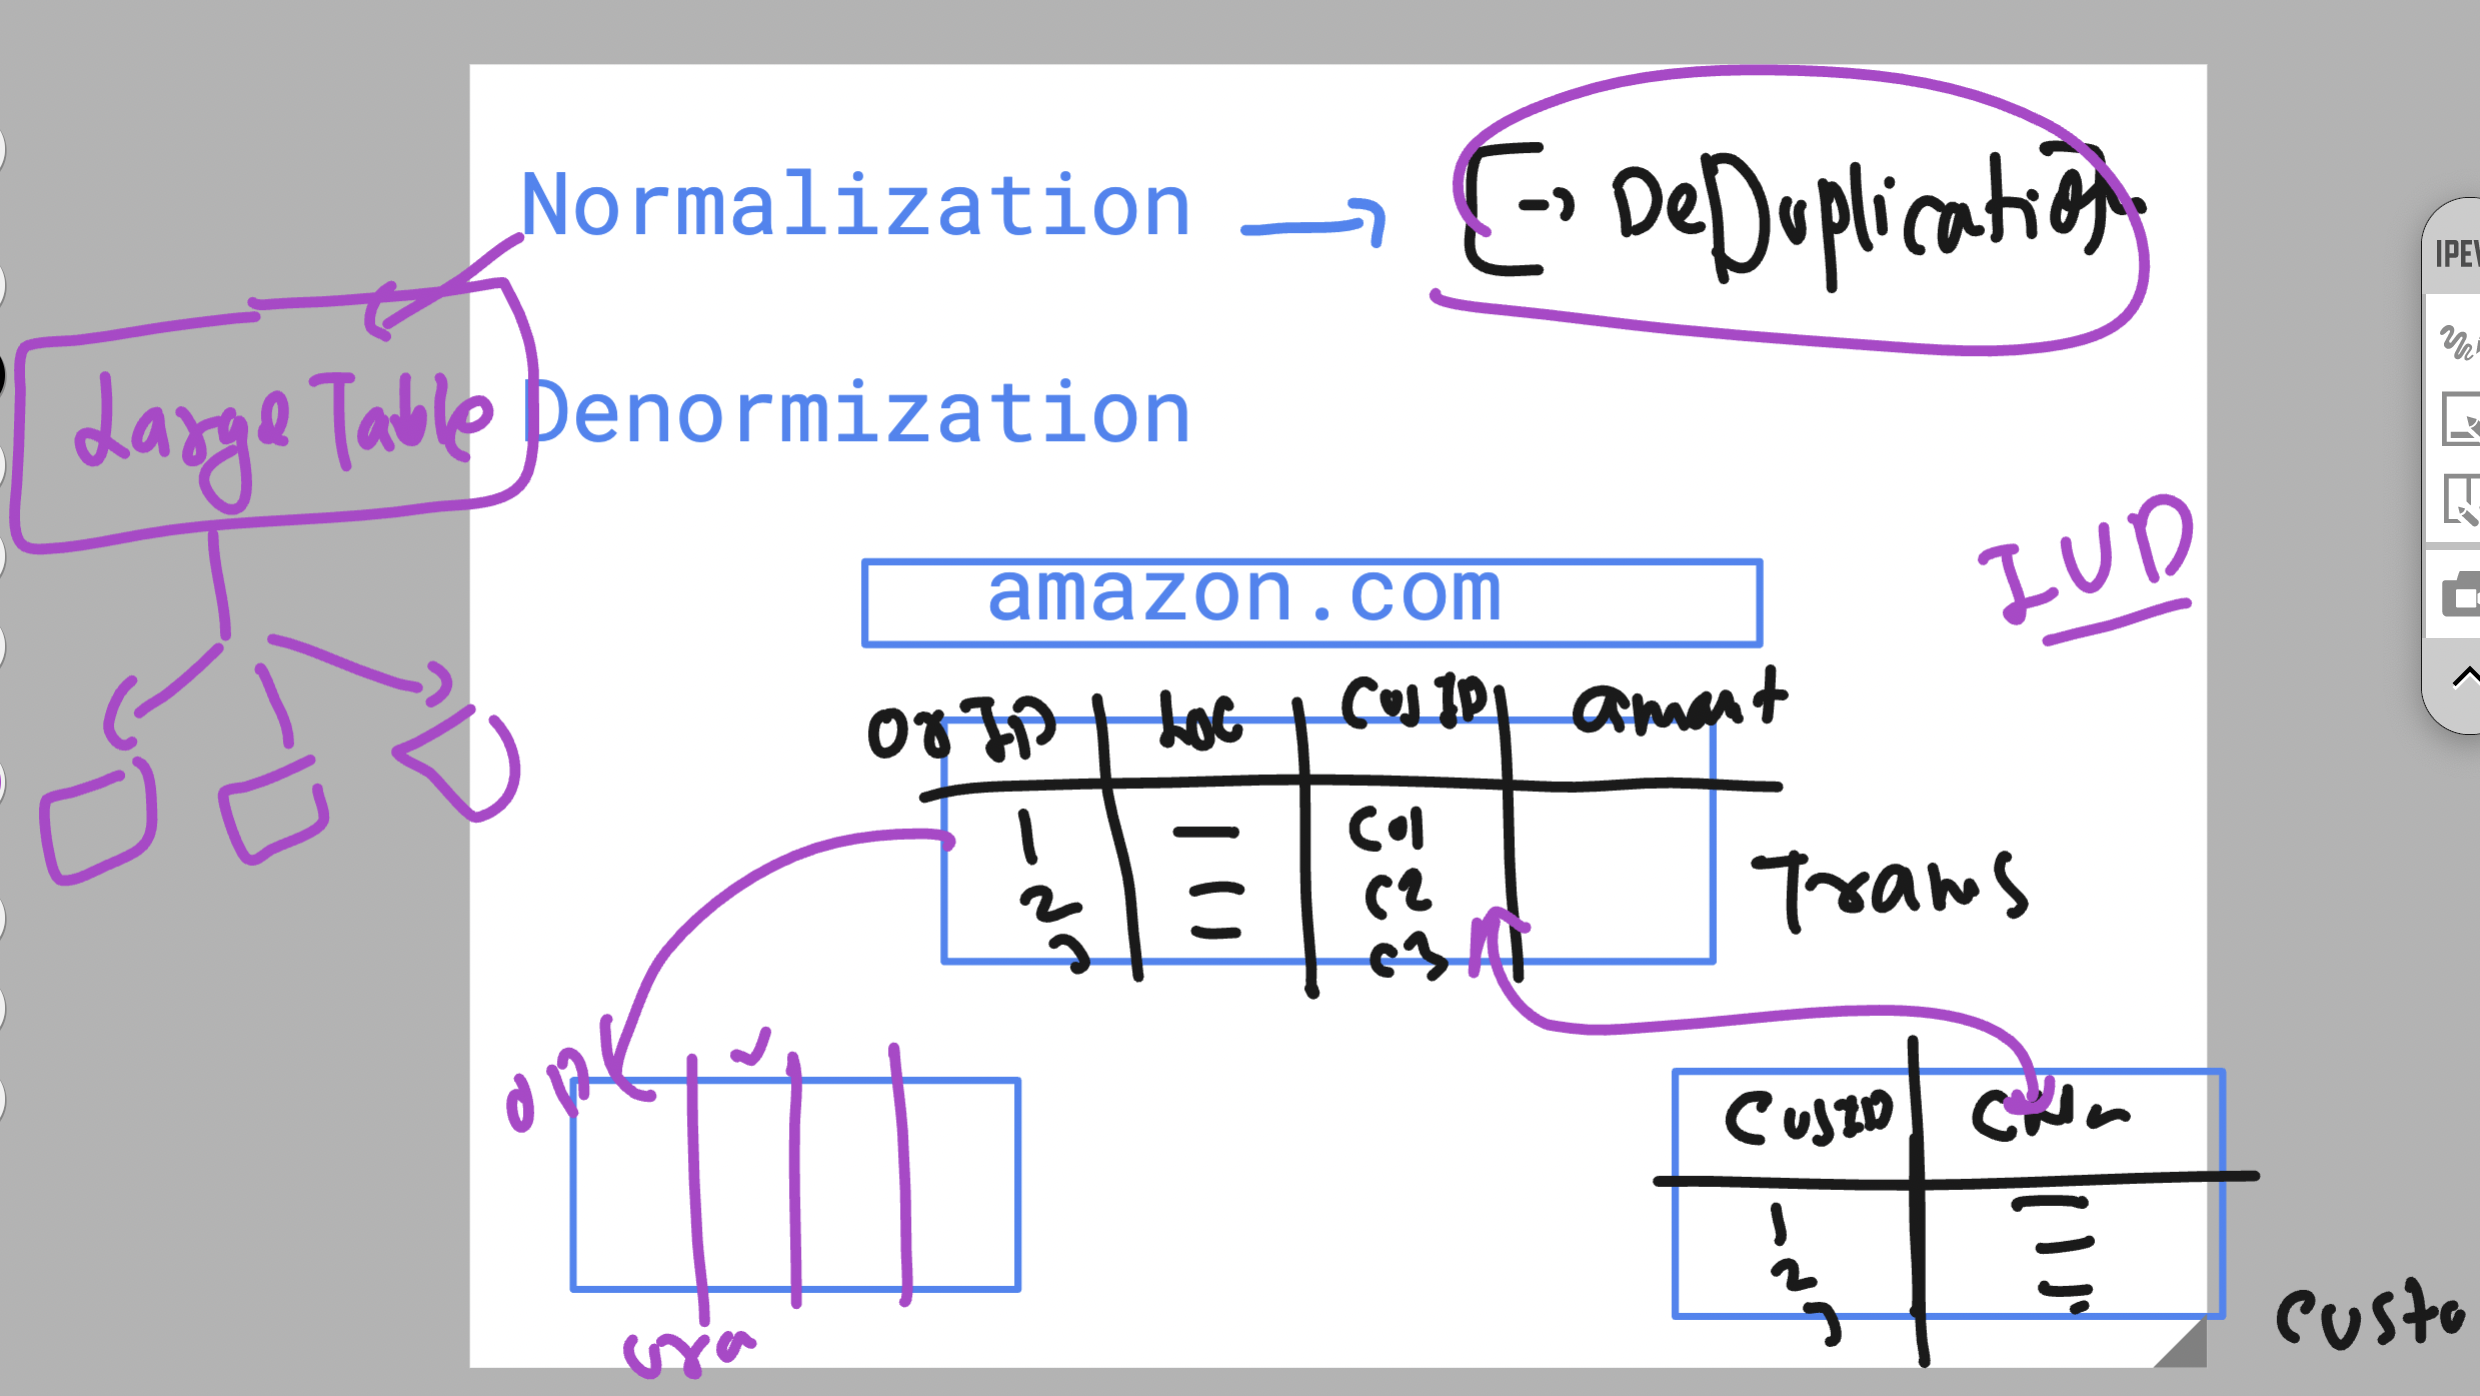 Normalization
[→ DeDuplication]
Large Table
Denormization
IUD
amazon.com
OrID LOC CusID amount
1 C01
2 C2
3 C3
Trans
CusID CNm
1
2
3
Custo
IPEV